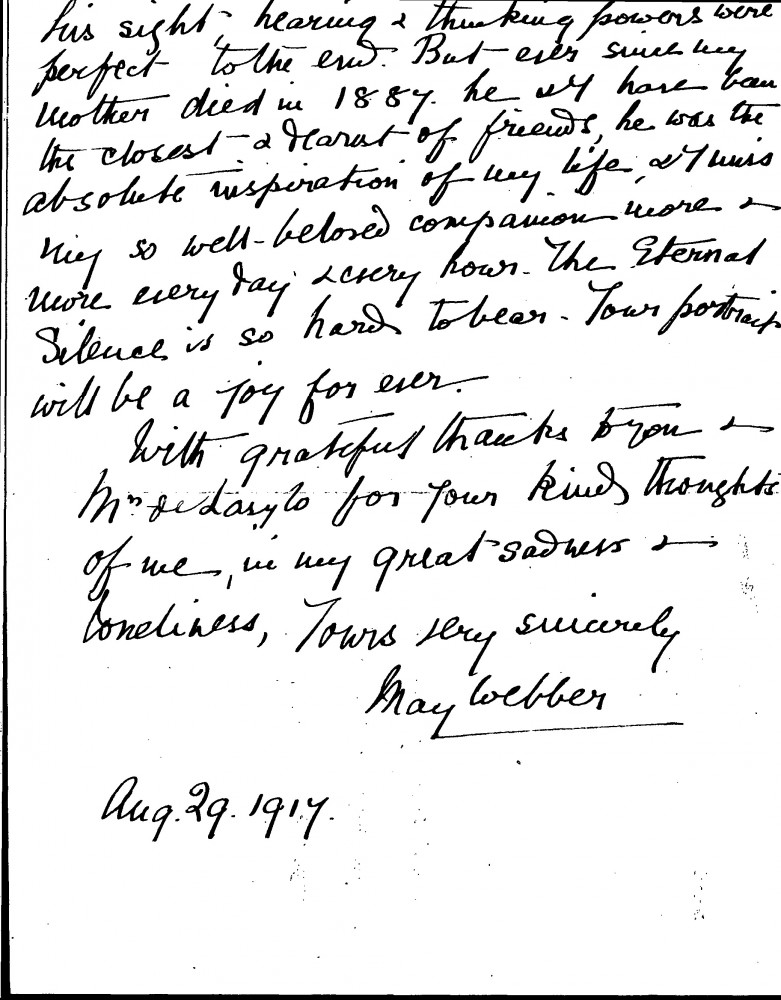 his sight, hearing & thinking powers were
perfect to the end. But ever since my
mother died in 1887. he & I have been
the closest & dearest of friends, he was the
absolute inspiration of my life, & I miss
my so well-beloved companion more &
more every day & every hour. The Eternal
Silence is so hard to bear - Your portrait
will be a joy for ever.
With grateful thanks to you &
Mrs de Laszlo for your kind thoughts
of me, in my great sadness &
loneliness, Yours very sincerely
May Webber
Aug. 29. 1917.